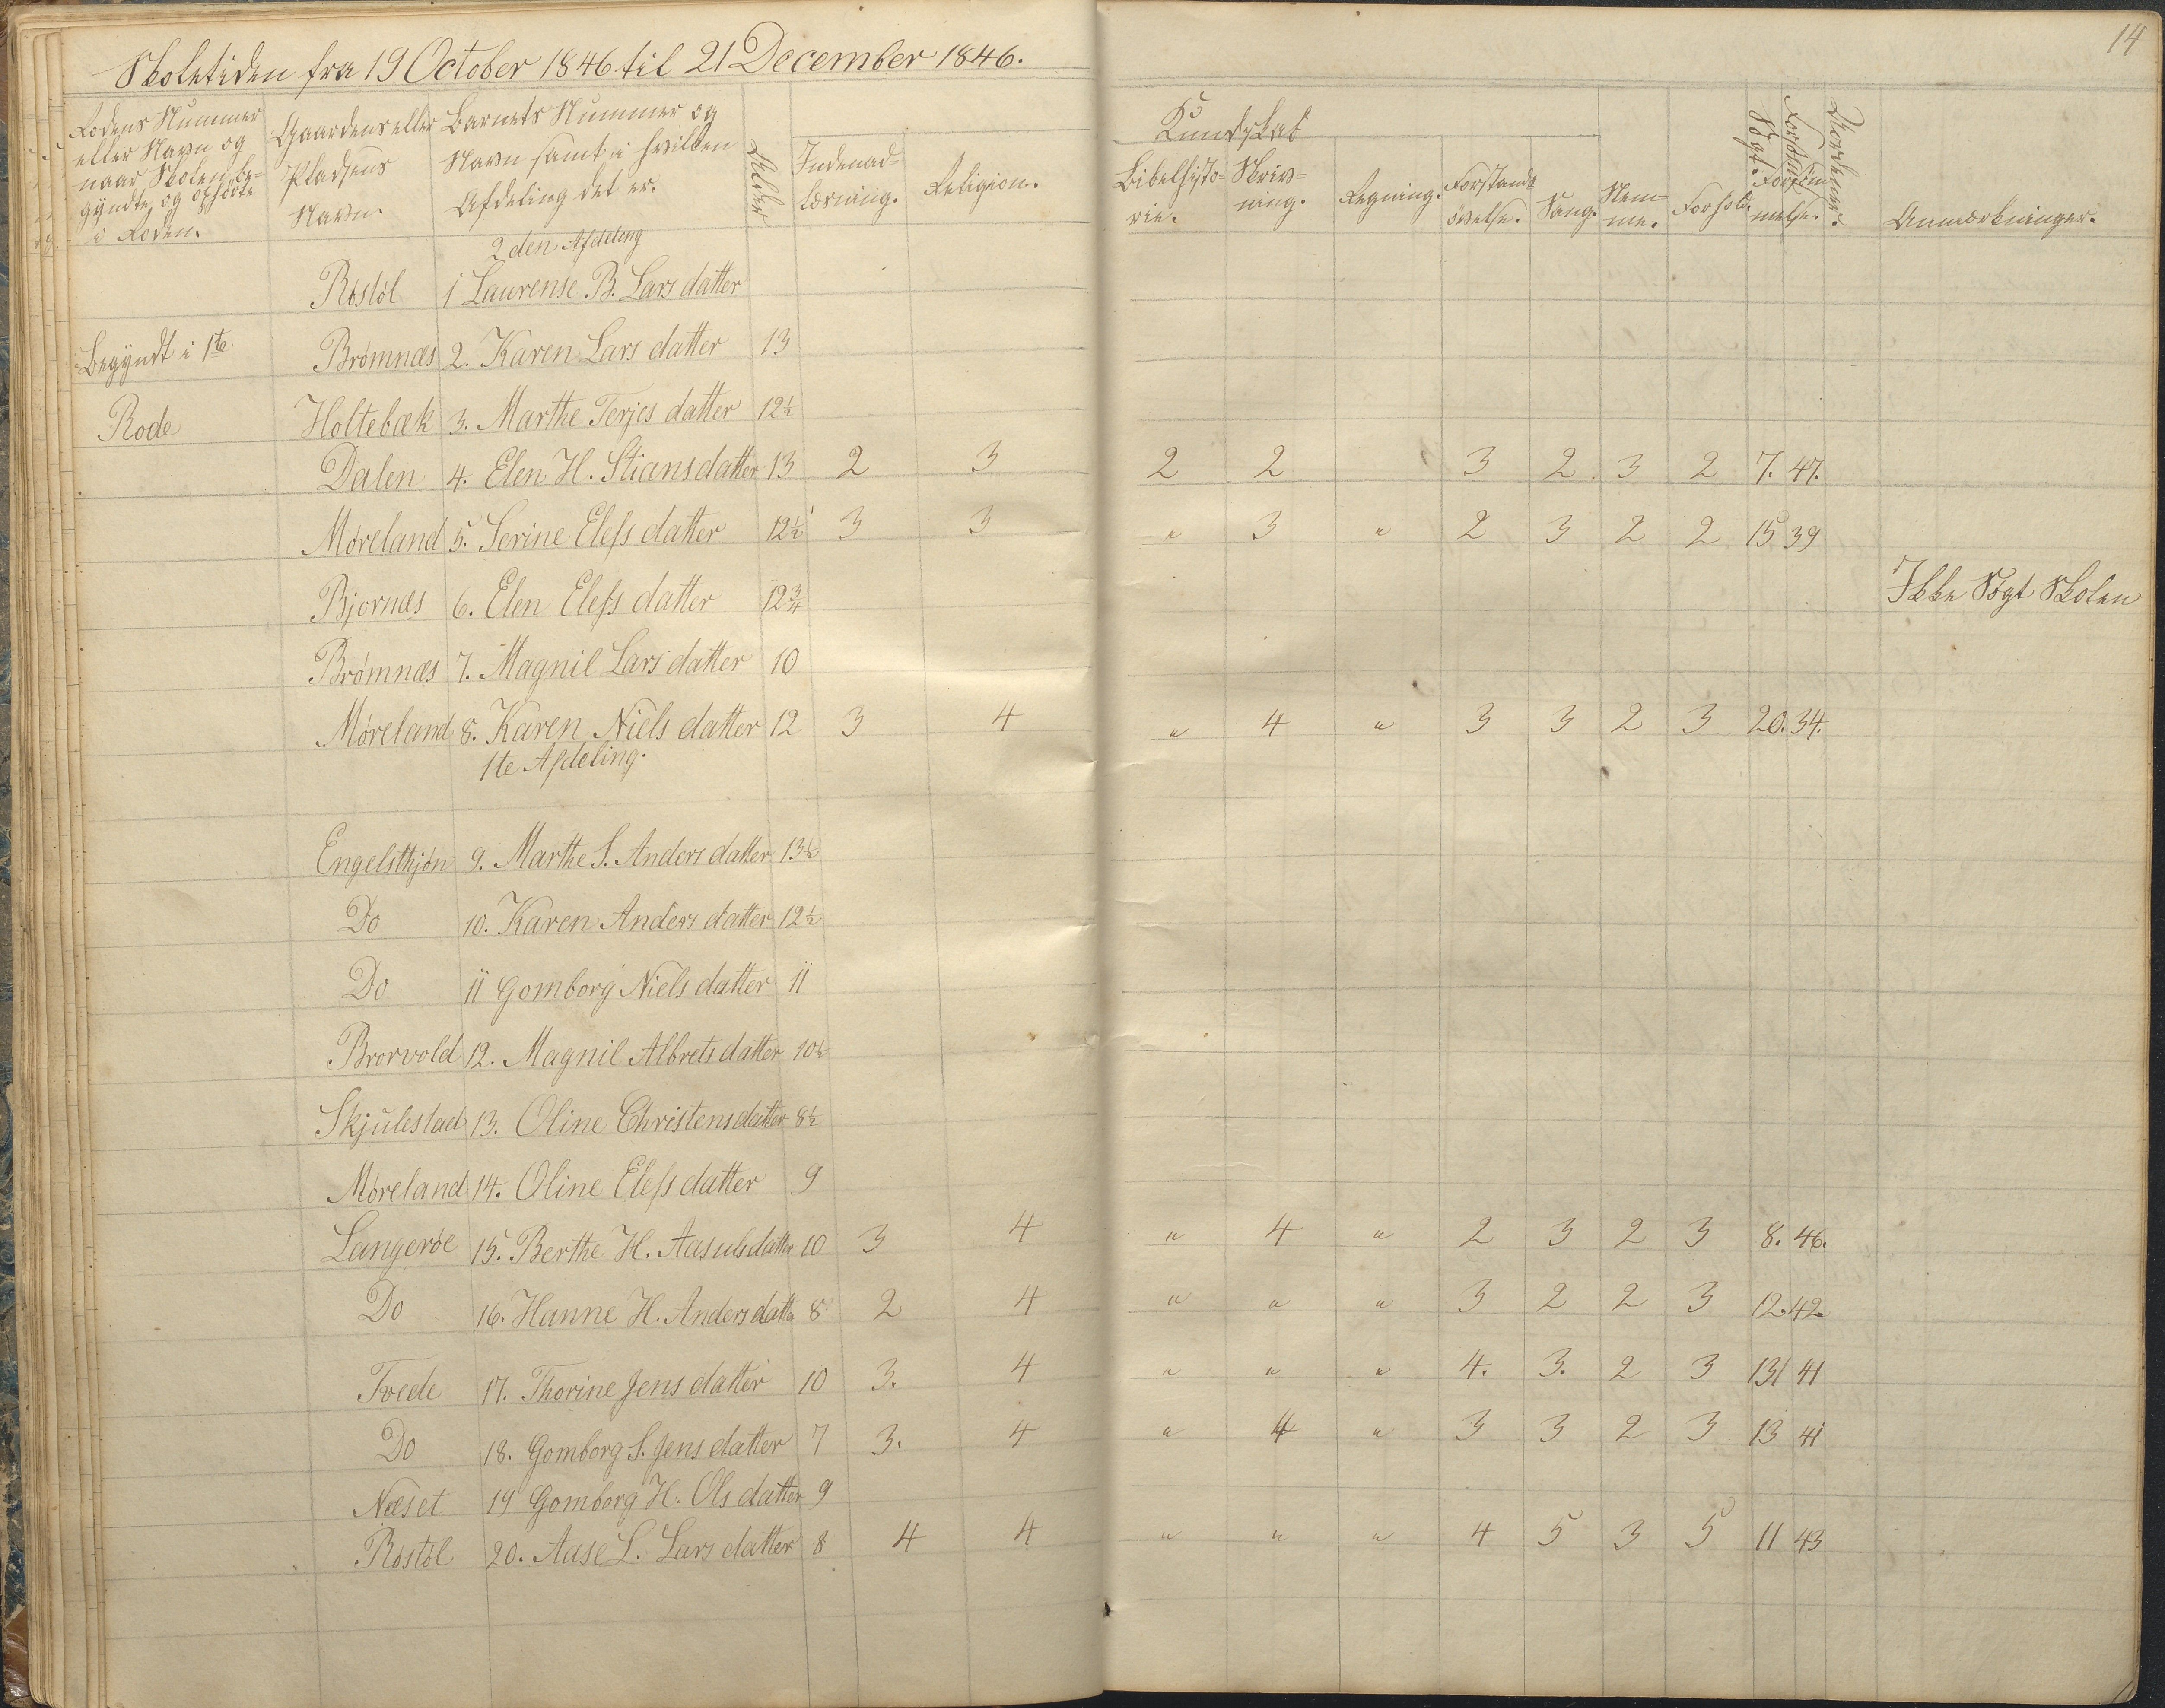 14
Skoletiden fra 19 October 1846 til 21 December 1846.
Rodens Nummer eller Navn og naar Skolen begyndte og ophørte i Roden.
Gaardens eller Pladsens Navn.
Barnets Nummer og Navn samt i hvilken Afdeling det er.
Alder
Kundskab
Indenadlæsning.
Religion.
Bibelhistorie.
Skrivning.
Regning.
Forstandsøvelse.
Sang.
Nemme.
Forhold.
Søgt.
Forsømmelse.
Anmærkninger.
2den Afdeling
Røstøl 1 Laurense B. Lars datter
Begyndt i 1te Brömnæs 2. Karen Lars datter 13
Rode Holtebæk 3. Marthe Terjes datter 12½
Dalen 4. Elen H. Stians datter 13 2 3 2 2 3 2 3 2 7. 47.
Møreland 5. Serine Elefs datter 12½ 3 3 " 3 " 2 3 2 2 15 39
Bjornæs 6. Elen Elefs datter 12¾ Ikke Søgt Skolen
Brömnæs 7. Magnil Lars datter 10
Møreland 8. Karen Niels datter 12 3 4 " 4 " 3 3 2 3 20. 34.
1te Afdeling.
Engelsthjøn 9. Marthe S. Anders datter 13½
Do 10. Karen Anders datter 12½
Do 11 Gomborg Niels datter 11
Brorvold 12. Magnil Albrets datter 10½
Skjulestad 13. Oline Christens datter 8½
Møreland 14. Oline Elefs datter 9
Langerøe 15. Berthe H. Aasuls datter 10 3 4 " 4 " 2 3 2 3 8. 46.
Do 16. Hanne H. Anders datte 8 2 4 " " " 3 2 2 3 12. 42.
Tvede 17. Thorine Jens datter 10 3. 4 " " " 4. 3. 2 3 13 41
Do 18. Gomborg S. Jens datter 7 3. 4 " 4 " 3 3 2 3 13 41
Næset 19 Gomborg H. Ols datter 9
Røstøl 20. Aase L. Lars datter 8 4 4 " " " 4 5 3 5 11 43